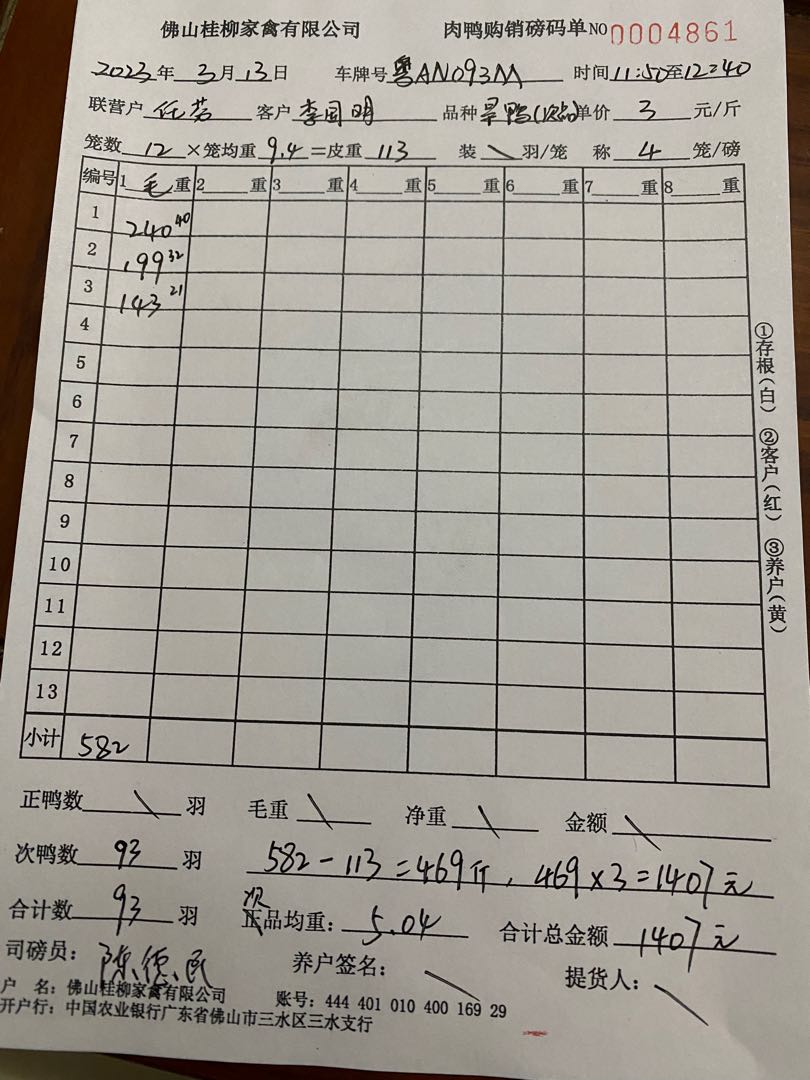 佛山桂柳家禽有限公司 肉鸭购销磅码单 NO 0004861
2023年 3月 13日 车牌号 粤AN093M 时间 11:50至12:40
联营户 任芳 客户 李国明 品种 旱鸭(次品) 单价 3 元/斤
笼数 12 ×笼均重 9.4 =皮重 113 装 \ 羽/笼 称 4 笼/磅
编号 1 毛 重 2 重 3 重 4 重 5 重 6 重 7 重 8 重
1 240 40
2 199 32
3 143 21
4
5
6
7
8
9
10
11
12
13
小计 582
①存根(白) ②客户(红) ③养户(黄)
正鸭数 \ 羽 毛重 \ 净重 \ 金额 \
次鸭数 93 羽 582-113=469斤, 469×3=1407元
合计数 93 羽 次品均重: 5.04 合计总金额 1407元
司磅员: 陈德民 养户签名: \ 提货人: \
户 名: 佛山桂柳家禽有限公司 账号: 444 401 010 400 169 29
开户行: 中国农业银行广东省佛山市三水区三水支行